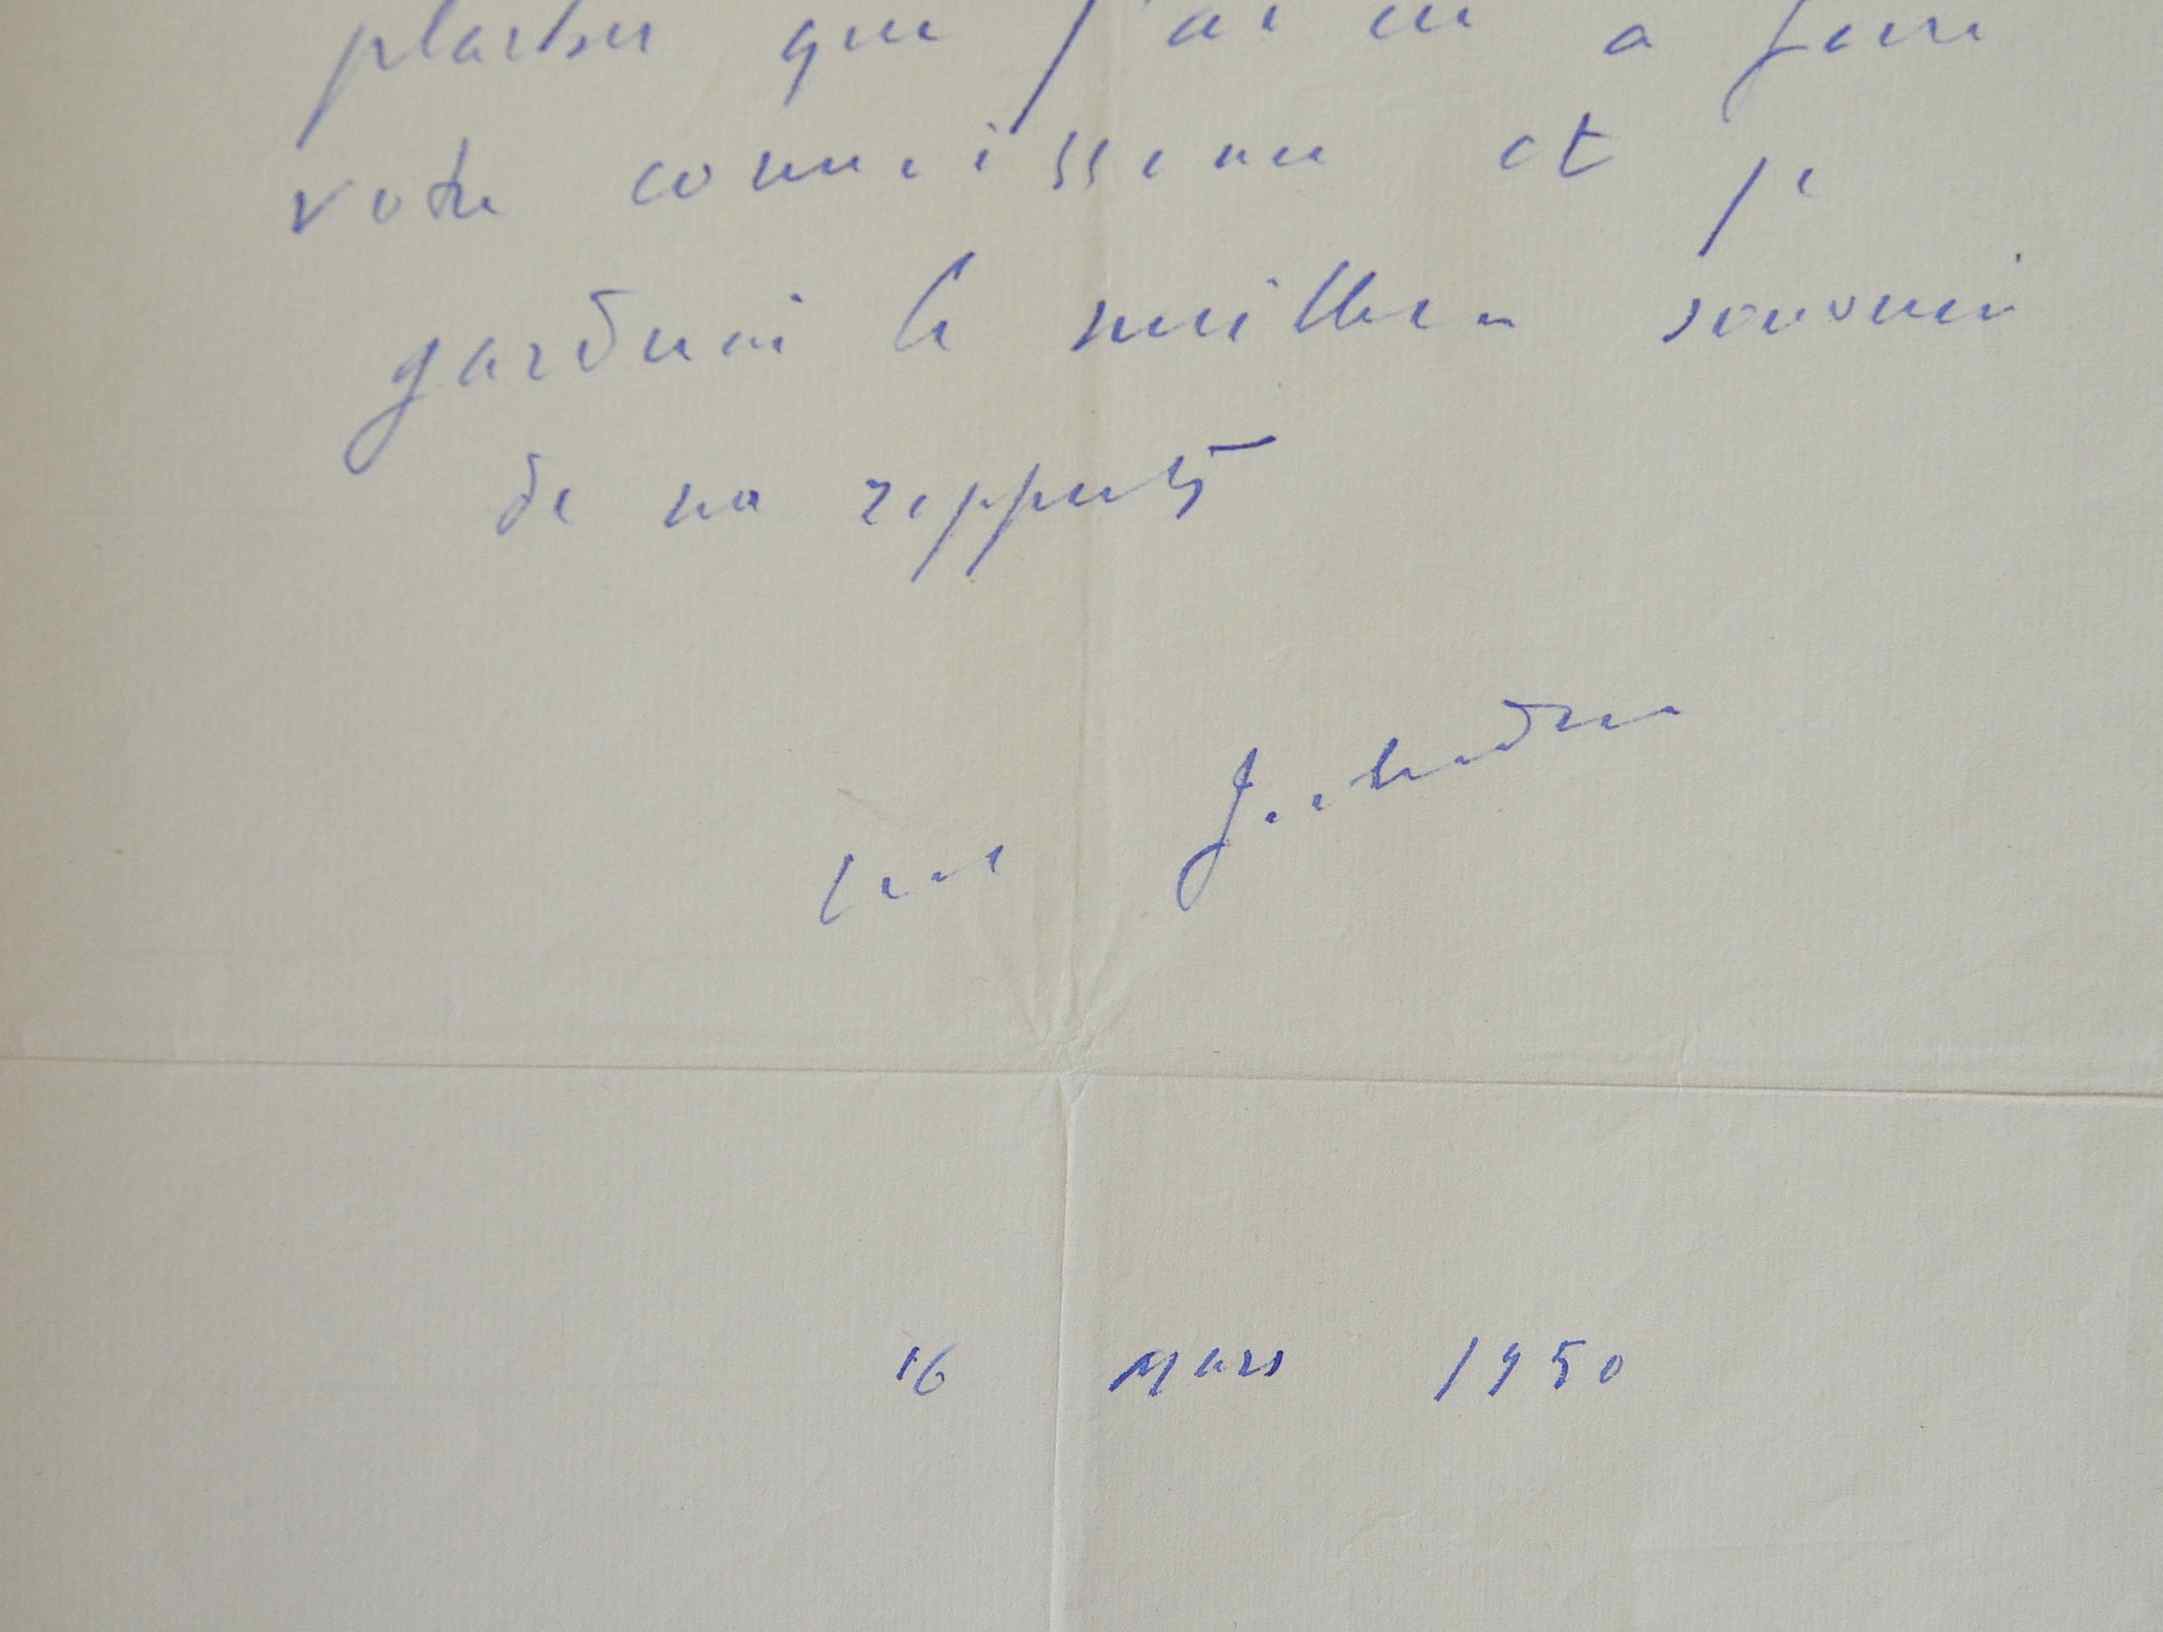 plaisir que j'ai eu a faire
votre connaissance et je
garderai le meilleur souvenir
de nos rapports
16 Mars 1950